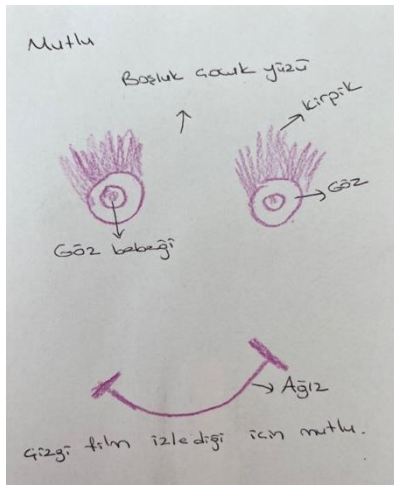 Mutlu
Boşluk Çocuk yüzü
Kirpik
Göz
Göz bebeği
Ağız
Çizgi film izlediği için mutlu.